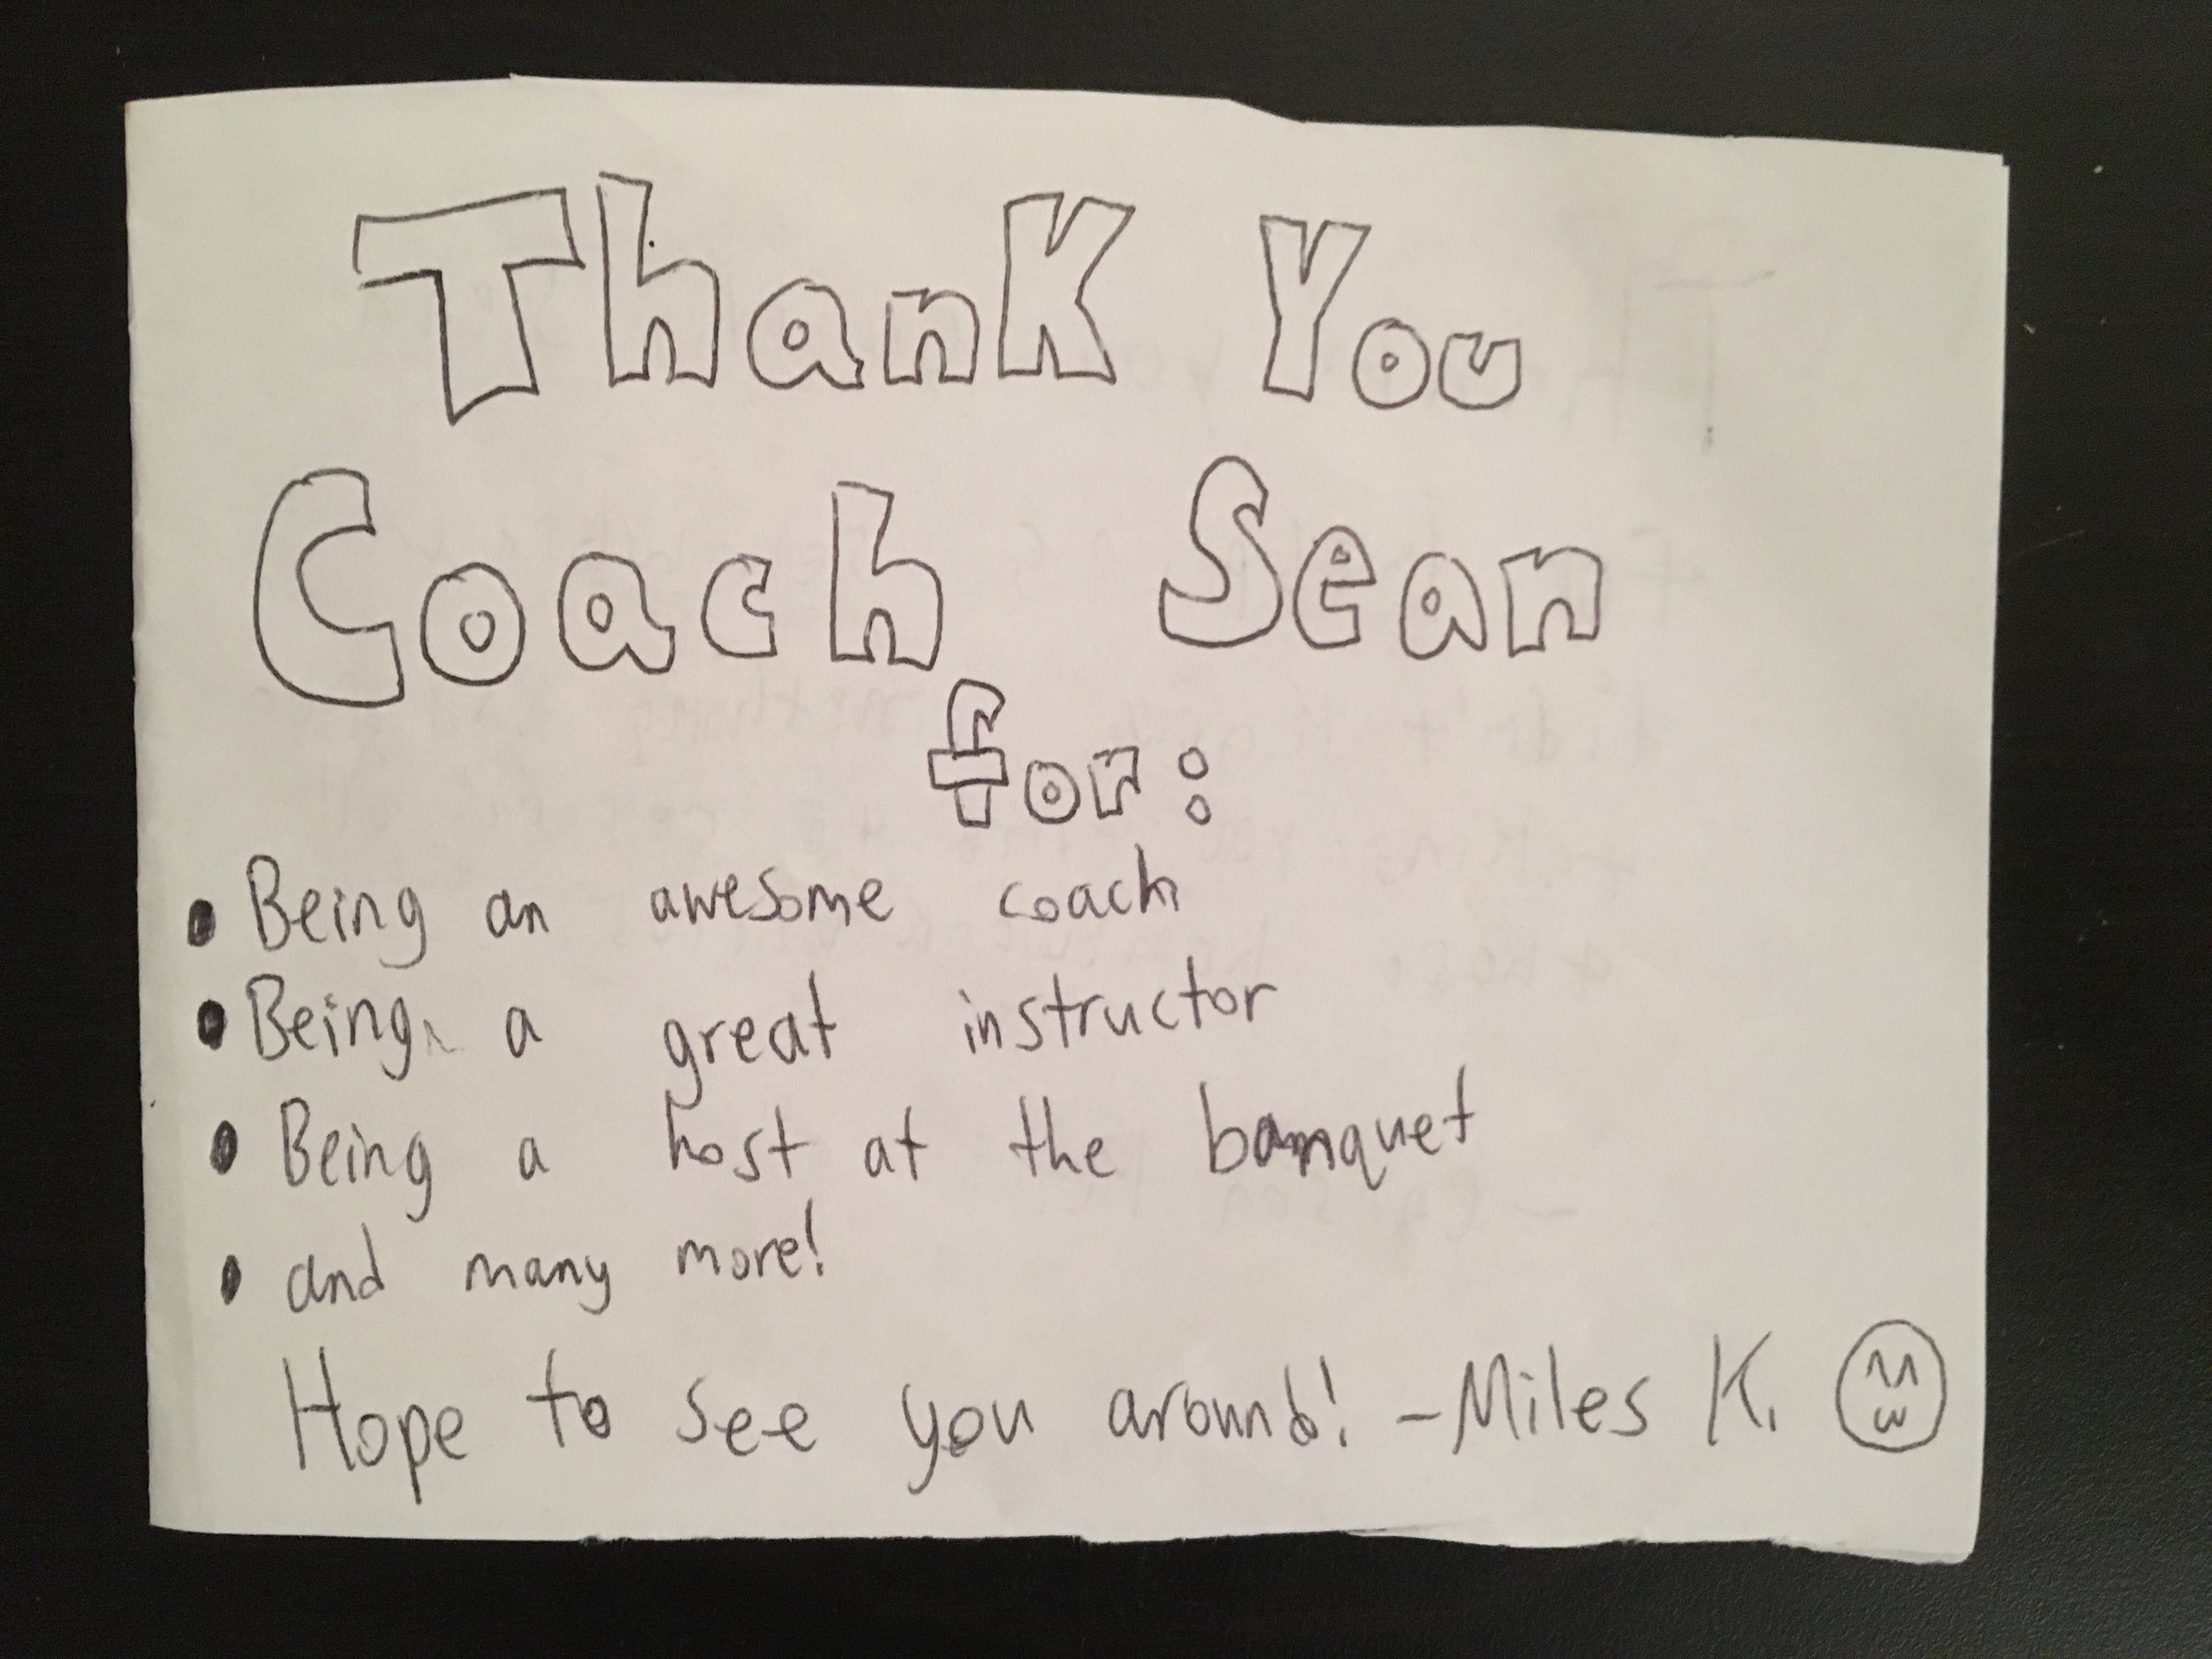 Thank You
Coach Sean
for:
• Being an awesome coach
• Being a great instructor
• Being a host at the banquet
• and many more!
Hope to see you around! -Miles K.